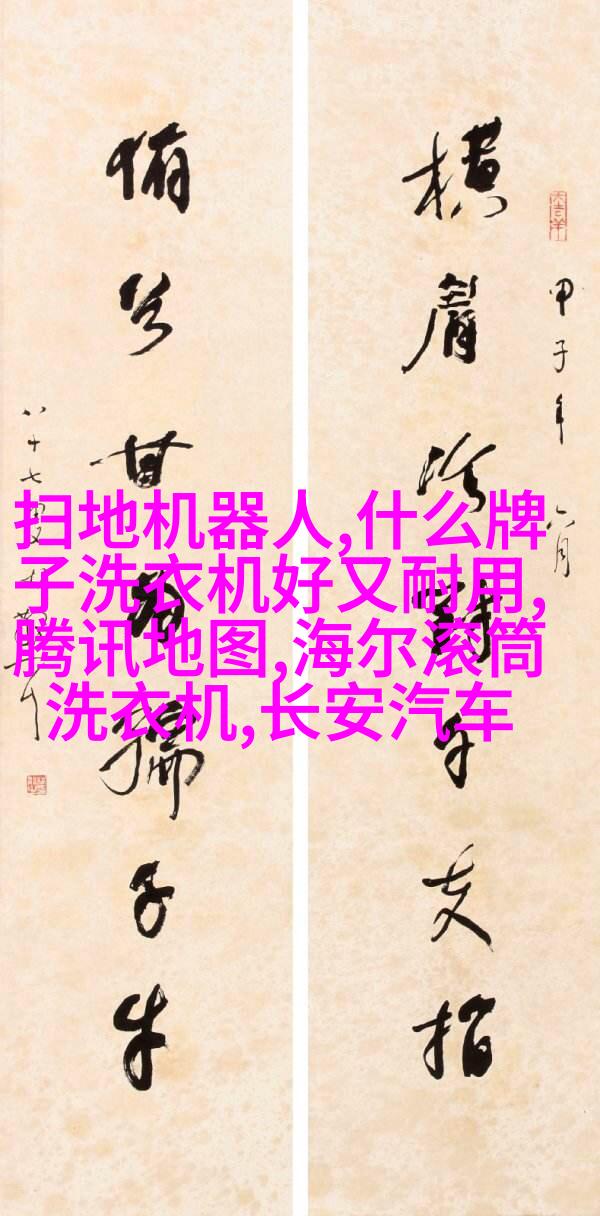 横眉冷對千夫指
甲子年六月
俯首甘為孺子牛
八十七叟
扫地机器人,什么牌
子洗衣机好又耐用,
腾讯地图,海尔滚筒
洗衣机,长安汽车